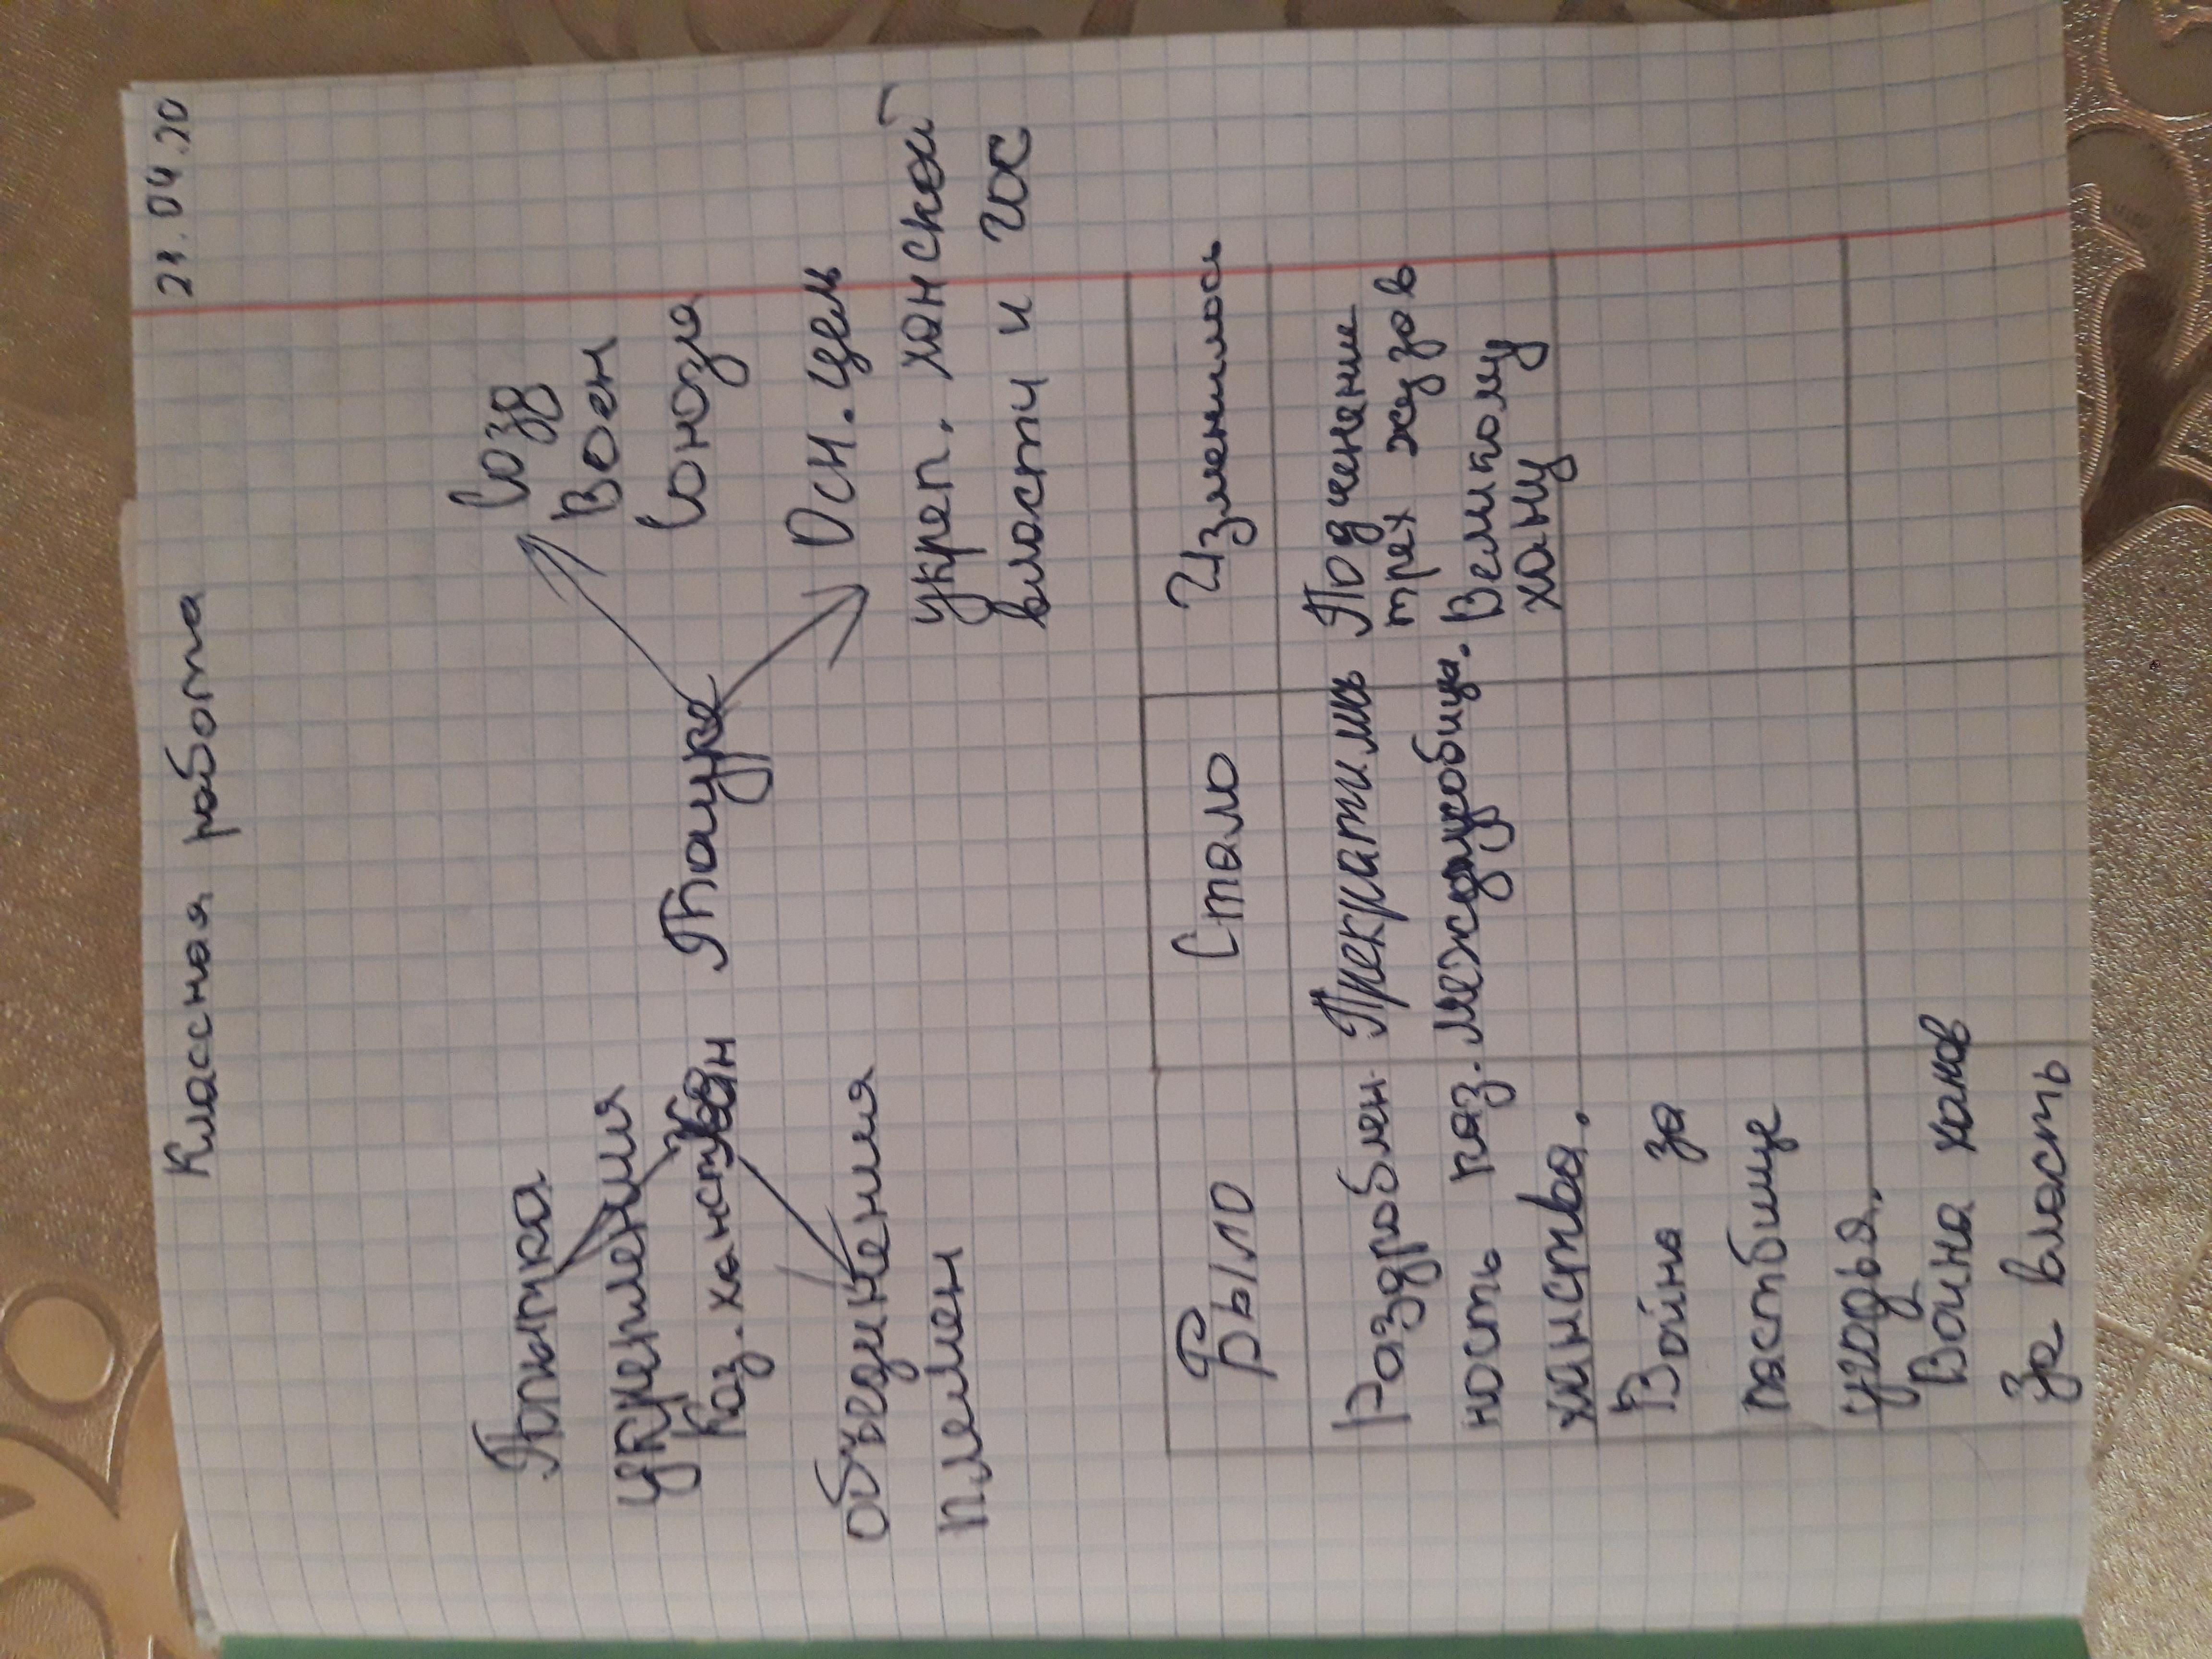 21.04.20
Классная работа
Попытка
укрепления
Каз. ханства
объединения
племен
Тауке
Созд
Воен
Союза
Осн. цель
укреп. ханской
власти и гос
Было Стало Изменилось
Раздроблен
ность каз.
ханства.
Прекратились
междоусобицы.
Подченение
трех жузов
Великому
хану
Война за
пастбище
угодья.
Воина ханов
За власть